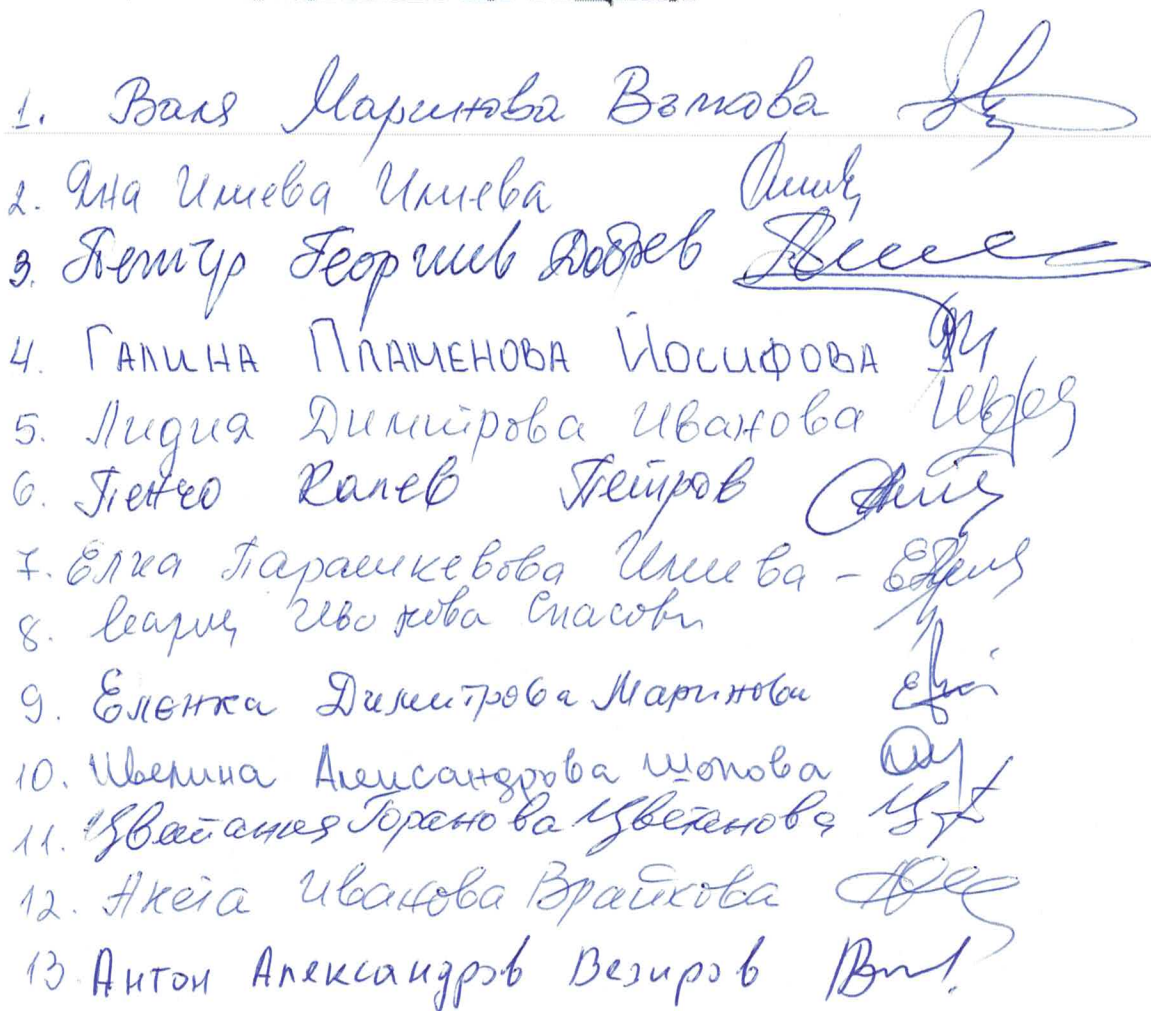 1. Валя Маринова Вълкова
2. Яна Илиева Илиева
3. Петър Георгиев Добрев
4. ГАЛИНА ПЛАМЕНОВА ЙОСИФОВА
5. Лидия Димитрова Иванова
6. Пенчо Калев Петров
7. Елка Парашкевова Илиева -
8. Мария Иванова Спасова
9. Еленка Димитрова Маринова
10. Ивелина Александрова Шопова
11. Цветанка Горанова Цветанова
12. Анета Иванова Врайкова
13. Антон Александров Везиров